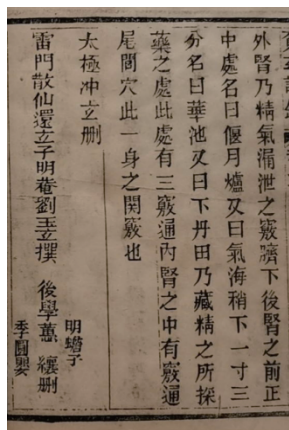 外腎乃精氣漏泄之竅臍下後腎之前正
中處名曰偃月爐又曰氣海稍下一寸三
分名曰華池又曰下丹田乃藏精之所採
藥之處此處有三竅通內腎之中有竅通
尾閭穴此一身之関竅也
太極冲玄刪
雷門散仙還玄子明菴劉玉撰 後學蕙 纕刪
明蟾子
季圓嬰